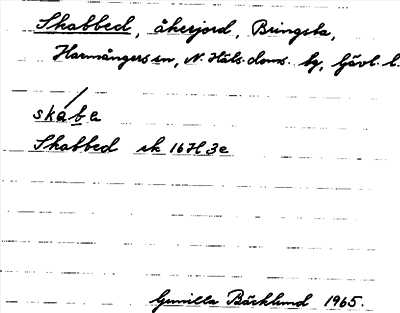 Skabbed, åkerjord, Bringsta,
Harmångers sn, N. Häls. doms. hg, Gävl. l.
skabe
Skabbed ek 16H3e
Gunilla Bäcklund 1965.